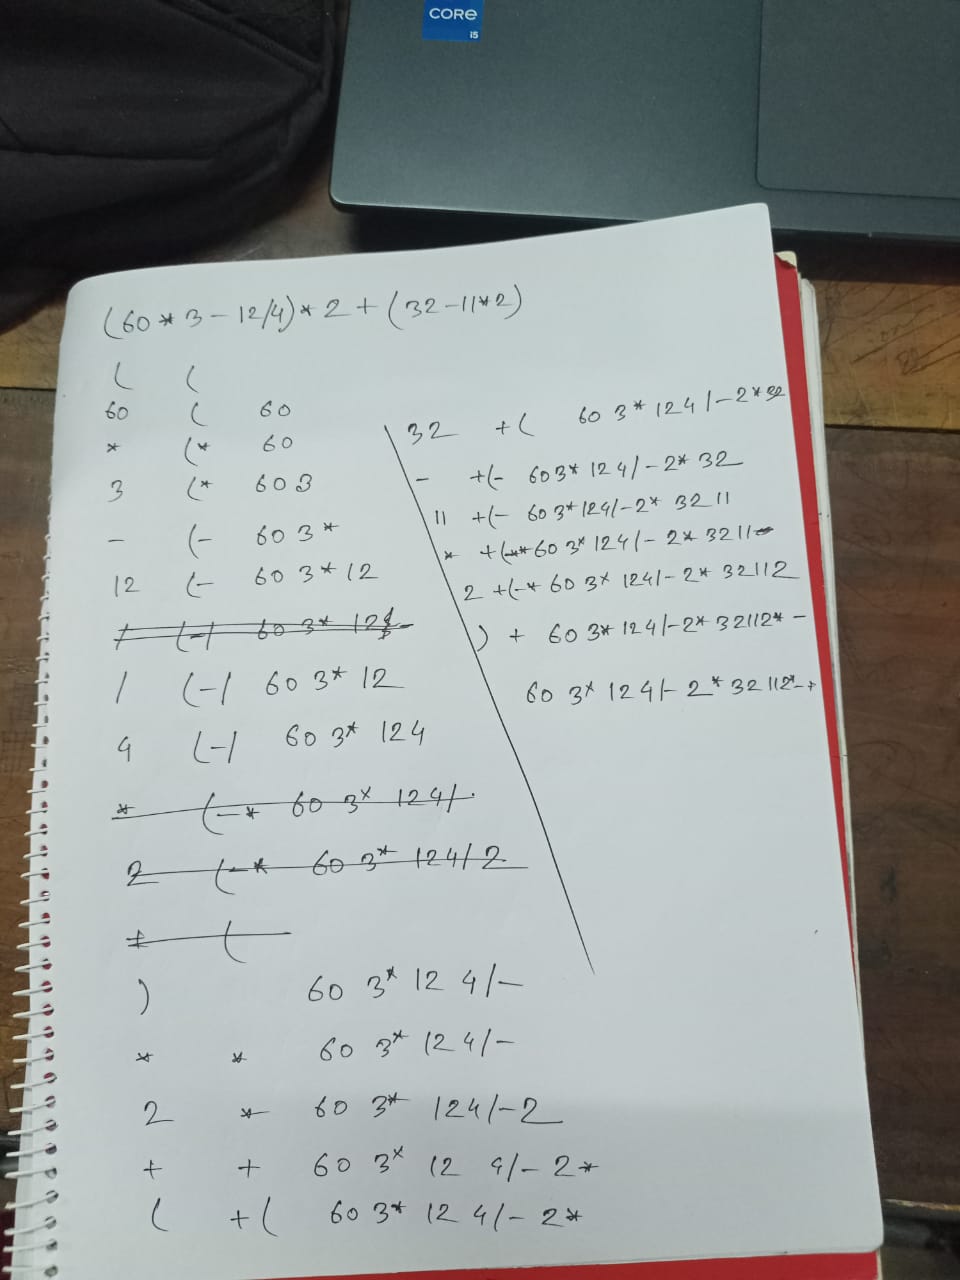 CORE
i5
(60 * 3 - 12/4) * 2 + (32 - 11*2)
( (
60 ( 60
* (* 60
3 (* 60 3
- (- 60 3 *
12 (- 60 3 * 12
/ (-/ 60 3* 12
/ (-/ 60 3* 12
4 (-/ 60 3* 124
* (-* 60 3* 124/
2 (-* 60 3* 124/2
+ (
) 60 3* 12 4/-
* * 60 3* 12 4/-
2 * 60 3* 124/-2
+ + 60 3* 12 4/- 2*
( +( 60 3* 12 4/- 2*
32 +( 60 3* 124/-2*32
- +(- 603* 124/-2* 32
11 +(- 60 3* 124/-2* 32 11
* +(-* 60 3* 124/- 2* 3211
2 +(-* 60 3* 124/- 2* 32112
) + 60 3* 124/-2* 32112* -
60 3* 124/- 2* 32 112*-+